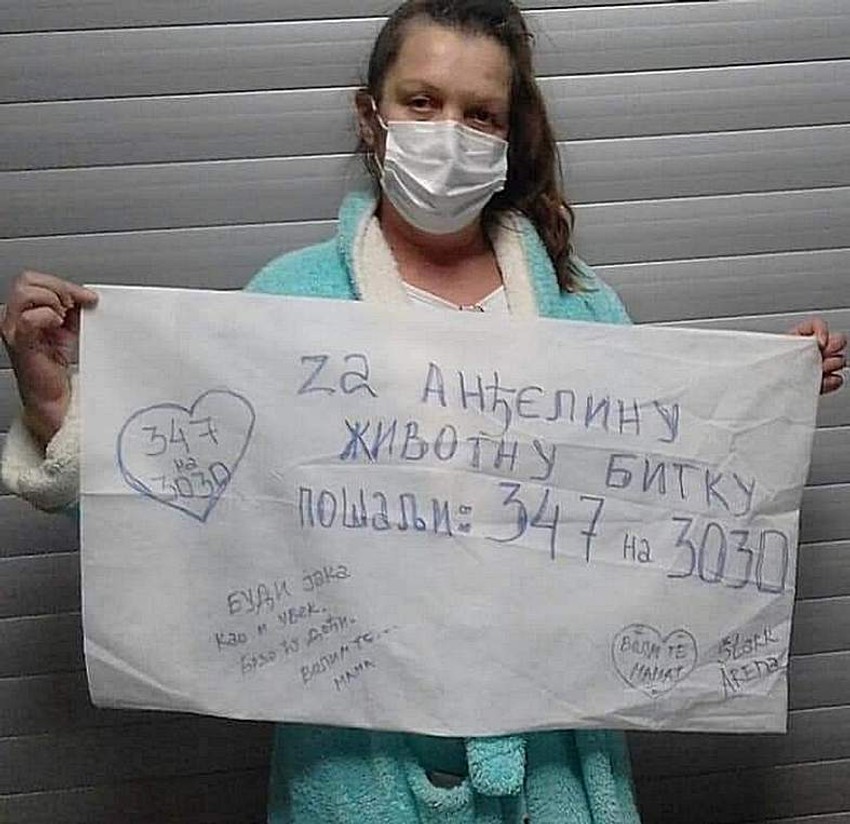 Za АНЂЕЛИНУ
ЖИВОТНУ БИТКУ
ПОШАЉИ: 347 на 3030
347
на
3030
БУДИ јака
као и увек.
Брзо ћу доћи.
ВОЛИМ ТЕ...
МАМА
ВОЛИМ ТЕ
Stark
ARENA